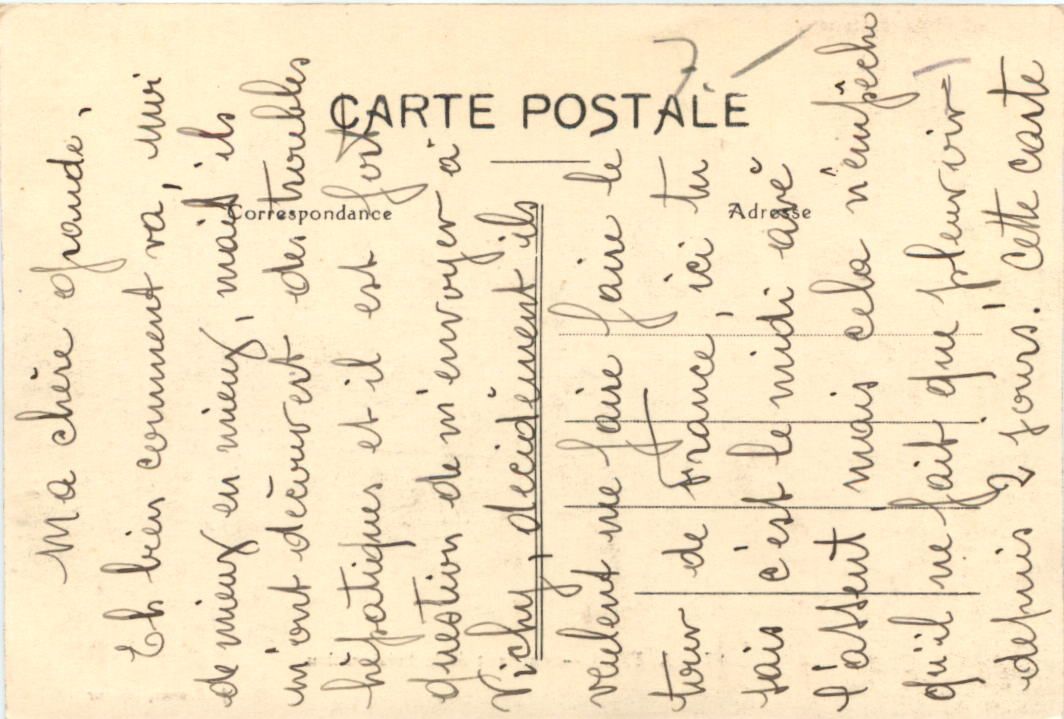 CARTE POSTALE
Correspondance
Adresse
Ma chère grande,
Eh bien comment va, moi
de mieux en mieux, mais ils
m'ont découvert des troubles
hépatiques et il est fort
question de m'envoyer à
Vichy, décidément ils
veulent me faire faire le
tour de france, ici tu
sais c'est le midi avé
l'assent mais cela n'empêche
qu'il ne fait que pleuvoir
depuis 2 jours. Cette carte